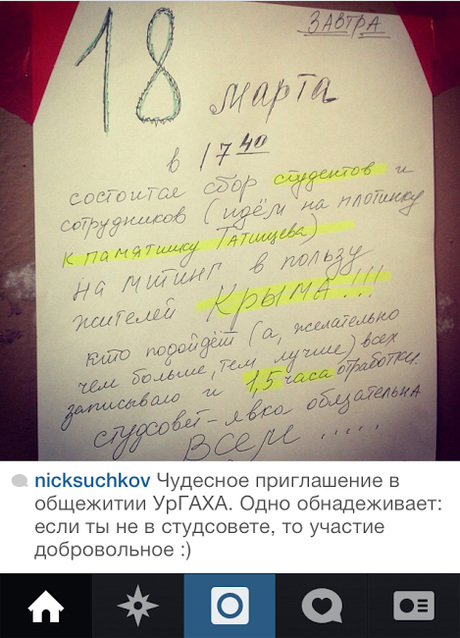 ЗАВТРА
18
марта
в 17 40
состоится сбор студентов и
сотрудников (идём на плотинку
к памятнику Татищева)
на митинг в пользу
жителей Крыма!!!
Кто подойдёт (а, желательно
чем больше, тем лучше) всех
записываю и 1,5 часа отработки.
студсовет - явка обязательна
Всем .....
nicksuchkov Чудесное приглашение в
общежитии УрГАХА. Одно обнадеживает:
если ты не в студсовете, то участие
добровольное :)